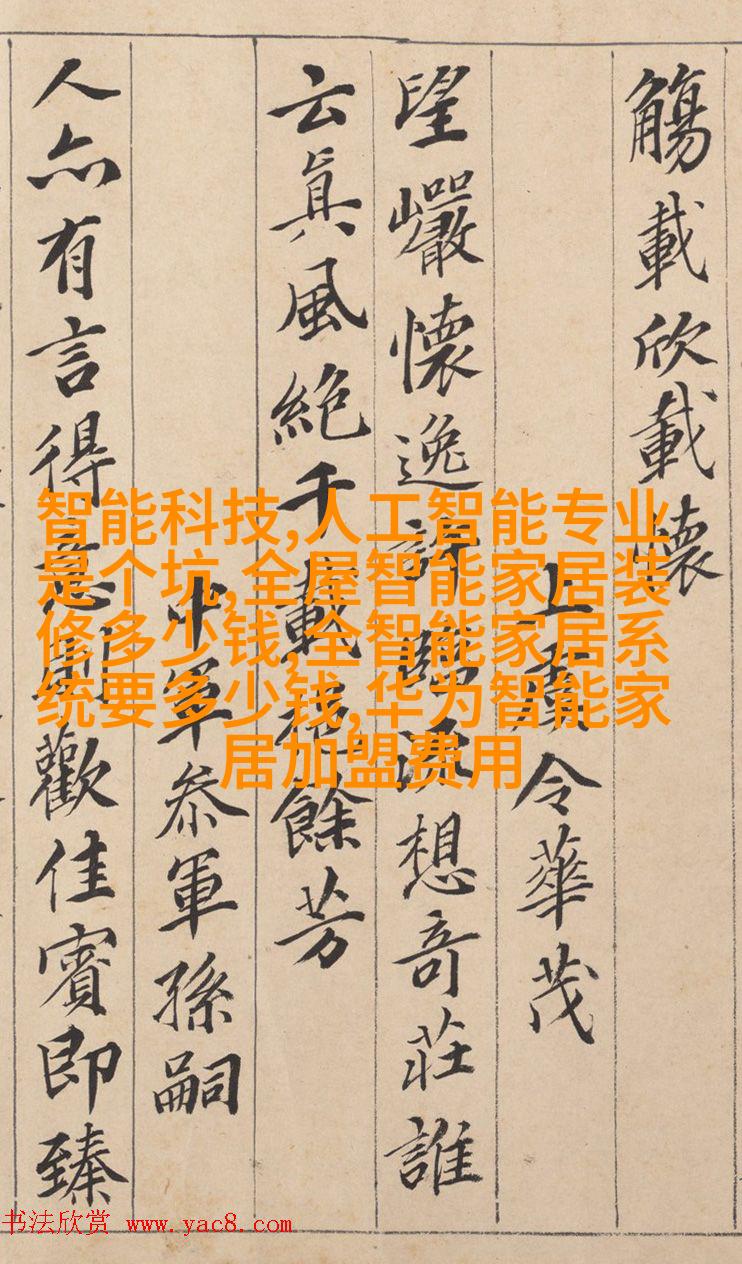 觴載欣載懷
上虞令華茂
望巖懷逸許臨流想奇莊誰
云真風絕千載挹餘芳
中軍參軍孫嗣
人亦有言得意則歡佳賓即臻
智能科技,人工智能专业
是个坑,全屋智能家居装
修多少钱,全智能家居系
统要多少钱,华为智能家
居加盟费用
书法欣赏 www.yac8.com